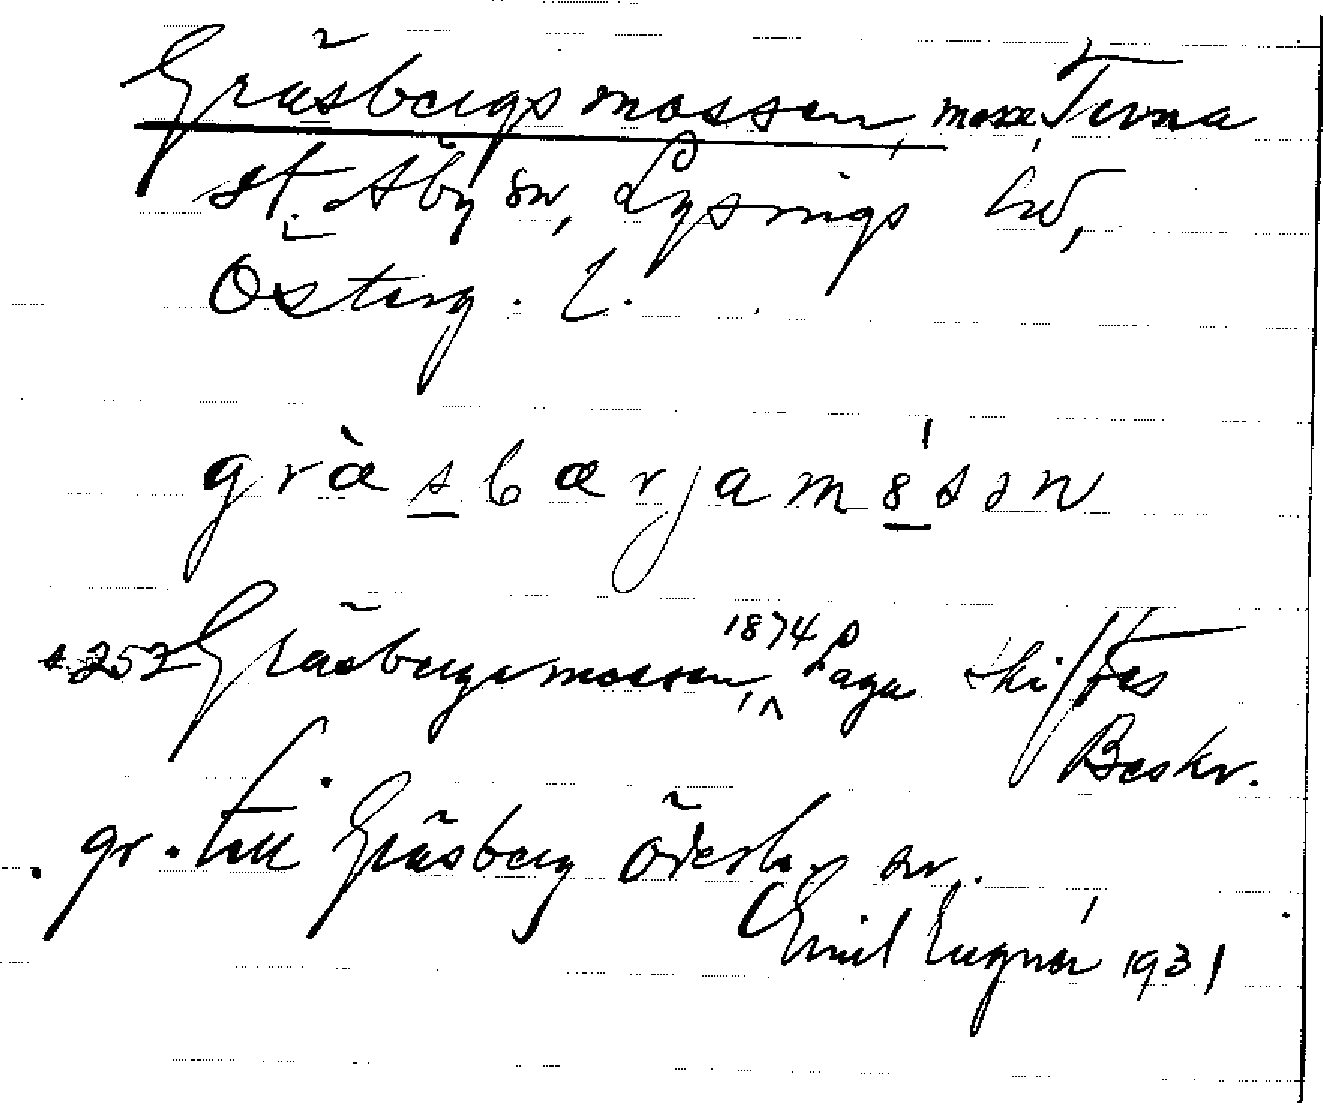 Gräsbergsmossen, mosse, Tevna
st. Åby sn, Lysings hd,
Österg. l.
gràsbærjam8́sən
s 252 Gräsbergsmossen, 1874 Laga skiftes
Beskr.
gr. till Gräsberg Ödesh. sn.
Emil Lugnér 1931